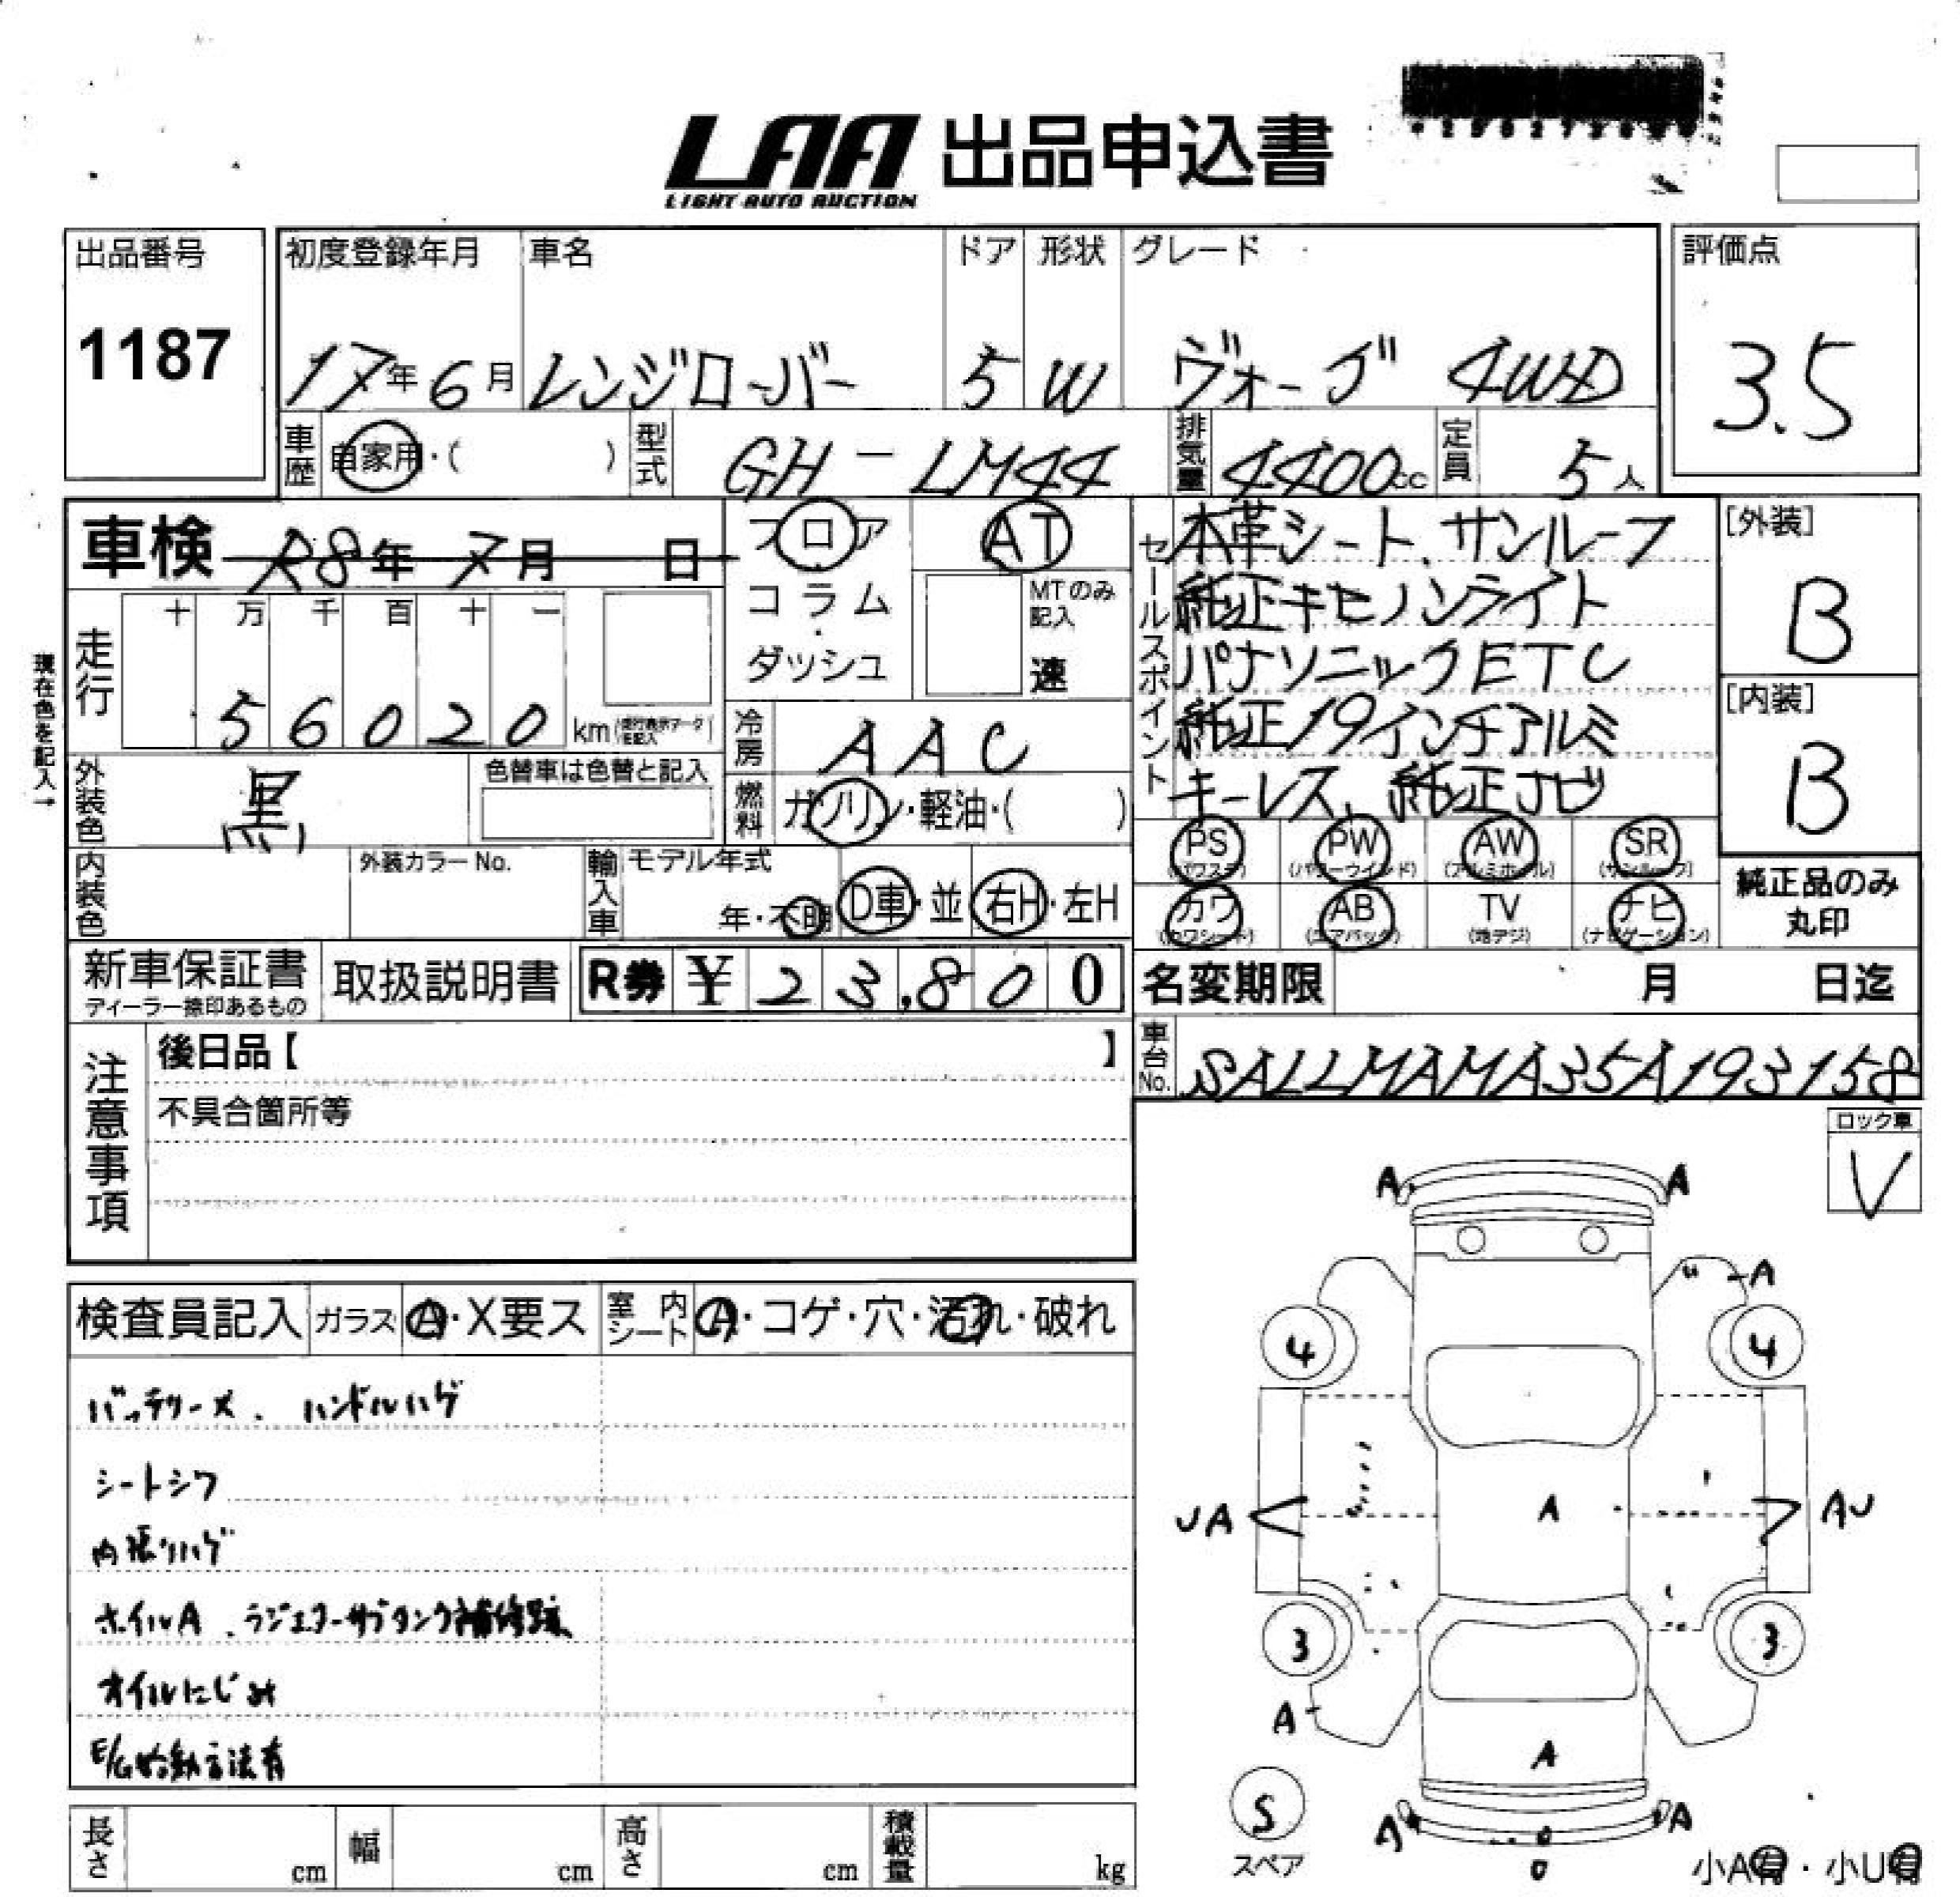 LAA 出品申込書
LIGHT AUTO AUCTION
出品番号
1187
初度登録年月 車名 ドア 形状 グレード
17年6月 レンジローバー 5 W ヴォーグ 4WD
評価点
3.5
車歴 自家用・( ) 型式 GH-LM44 排気量 4400cc 定員 5人
車検 R8年 7月 日
フロア AT
コラム・ダッシュ
MTのみ記入
速
走行 十 万 千 百 十 一
56020 km
現在色を記入→
外装色 黒 色替車は色替と記入
冷房 AAC
燃料 ガソリン・軽油・( )
セールスポイント
本革シート、サンルーフ
純正キセノンライト
パナソニックETC
純正19インチアルミ
キーレス、純正ナビ
[外装]
B
[内装]
B
内装色 外装カラーNo. 輸入車 モデル年式
年・不明 D車・並 右H・左H
PS PW AW SR
(パワステ) (パワーウインド) (アルミホイル) (サンルーフ)
カワ AB TV ナビ
(カワシート) (エアバッグ) (地デジ) (ナビゲーション)
純正品のみ
丸印
新車保証書 取扱説明書 R券 ¥23,800
ディーラー捺印あるもの
名変期限 月 日迄
注意事項
後日品【 】
不具合箇所等
車台No. SALLMAMA35A193158
ロック車
V
検査員記入 ガラス A・X要ス 室内シート A・コゲ・穴・汚れ・破れ
バッテリーメ、ハンドルハゲ
シートシワ
内張りハゲ
ホイルA、ラジエターサブタンク補修跡
オイルにじみ
E/G始動方法有
A A
A
4 4
UA A AU
3 3
A
A
S
スペア
A
小A有・小U有
長さ cm 幅 cm 高さ cm 積載量 kg